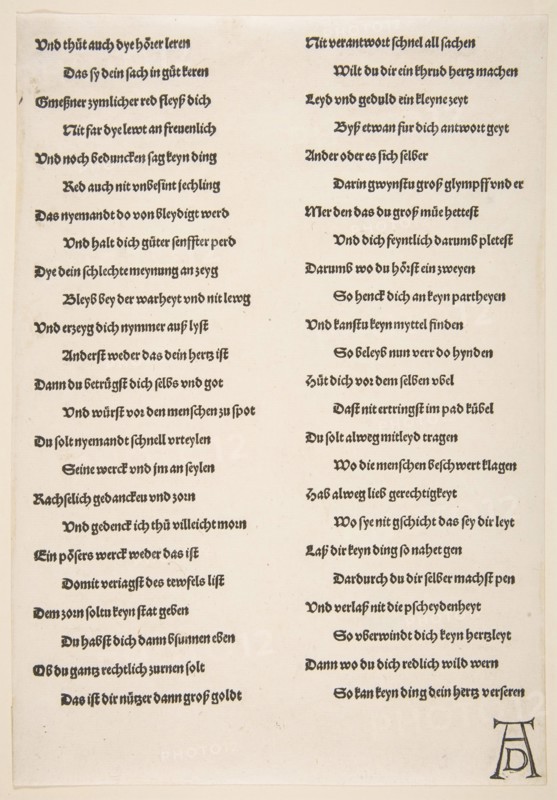 Vnd thůt auch dye hőrer leren
Das sy dein sach in gůt keren
Gmeßner zymlicher red fleyß dich
Nit far dye lewt an freuenlich
Vnd noch beduncken sag keyn ding
Red auch nit vnbesint jechling
Das nyemandt do von bleydigt werd
Vnd halt dich gůter senffter perd
Dye dein schlechte meynung an zeyg
Bleyb bey der warheyt vnd nit lewg
Vnd erzeyg dich nymmer auß lyst
Anderst weder das dein hertz ist
Dann du betrůgst dich selbs vnd got
Vnd wůrst vor den menschen zu spot
Du solt nyemandt schnell vrteylen
Seine werck vnd jm an seylen
Rachselich gedancken vnd zorn
Vnd gedenck ich thů villeicht morn
Ein pősers werck weder das ist
Domit veriagst des tewfels list
Dem zorn soltu keyn stat geben
Du habst dich dann bsunnen eben
Ob du gantz rechtlich zurnen solt
Das ist dir nützer dann groß goldt
Nit verantwort schnel all sachen
Wilt du dir ein khrud hertz machen
Leyd vnd geduld ein kleyne zeyt
Byß etwan fur dich antwort geyt
Ander oder es sich selber
Darin gwynstu groß glympff vnd er
Mer den das du groß můe hettest
Vnd dich feyntlich darumb pletest
Darumb wo du hőrst ein zweyen
So henck dich an keyn partheyen
Vnd kanstu keyn myttel finden
So beleyb nun verr do hynden
Hüt dich vor dem selben vbel
Dast nit ertringst im pad kübel
Du solt alweg mitleyd tragen
Wo die menschen beschwert klagen
Hab alweg lieb gerechtigkeyt
Wo sye nit gschicht das sey dir leyt
Laß dir keyn ding so nahet gen
Dardurch du dir selber machst pen
Vnd verlaß nit die pscheydenheyt
So vberwindt dich keyn hertzleyt
Dann wo du dich redlich wild wern
So kan keyn ding dein hertz verseren
AD